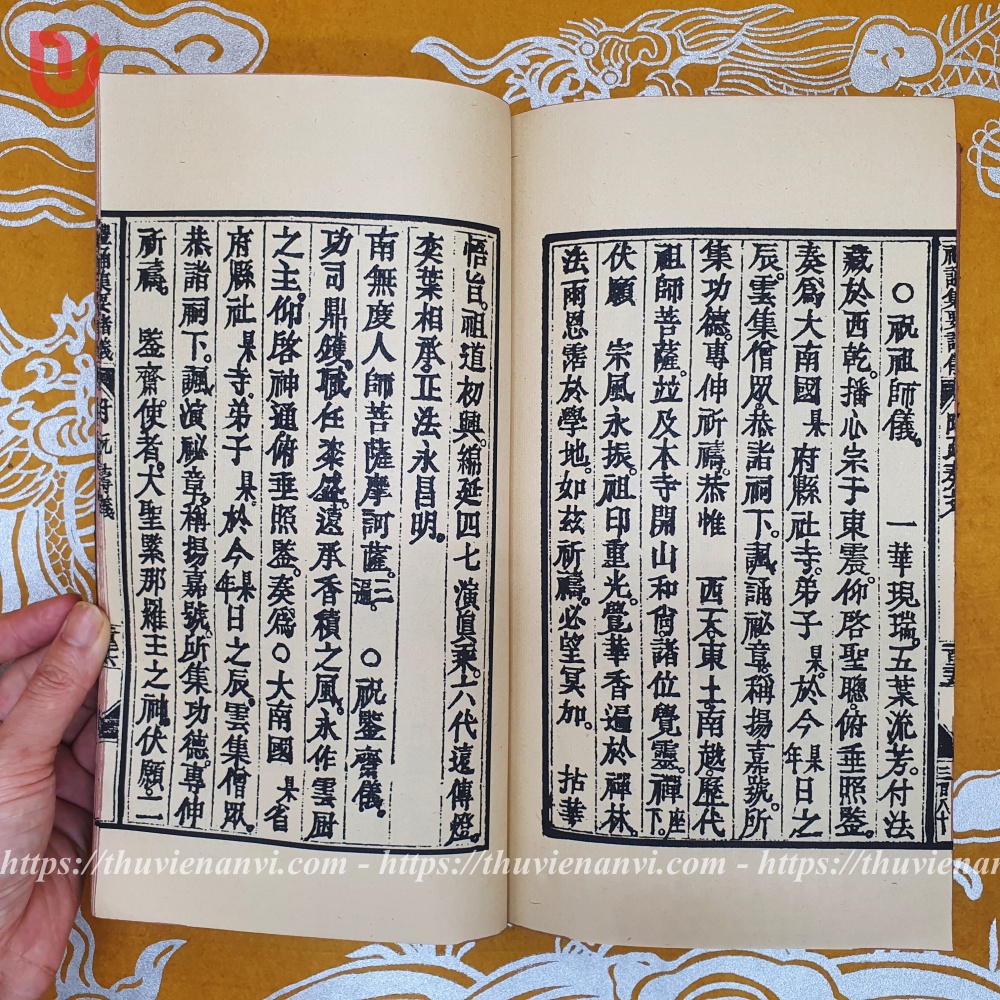 ○祝祖師儀。 一華現瑞。五葉流芳。付法
藏於西乾。播心宗于東震。仰啓聖聰。俯垂照鑒。
奏爲大南國某府縣社寺。弟子某。於今某年日之
辰。雲集僧眾。恭諸祠下。諷誦祕章。稱揚嘉號。所
集功德。專伸祈禱。恭惟 西天東土。南越。歷代
祖師菩薩。並及本寺開山和尚諸位覺靈。禪座下。
伏願 宗風永振。祖印重光。覺華香遍於禪林。
法雨恩霑於學地。如玆祈禱。必望冥加。 拈華
悟旨。祖道初興。編延四七演眞乘。六代遠傳燈。
奕葉相承。正法永昌明。
南無度人師菩薩摩訶薩。三遍。 ○祝監齋儀。
功司鼎鑊。職任粢盛。遠承香積之風。永作雲厨
之主。仰啓神通。俯垂照鑒。奏爲○大南國某省
府縣社某寺。弟子某。於今某年日之辰。雲集僧眾。
恭諸祠下。諷演祕章。稱揚嘉號。所集功德。專伸
祈禱。 監齋使者。大聖緊那羅王之神。伏願。二
三百八十
https://thuvienanvi.com - https://thuvienanvi.com - https://thuvienan